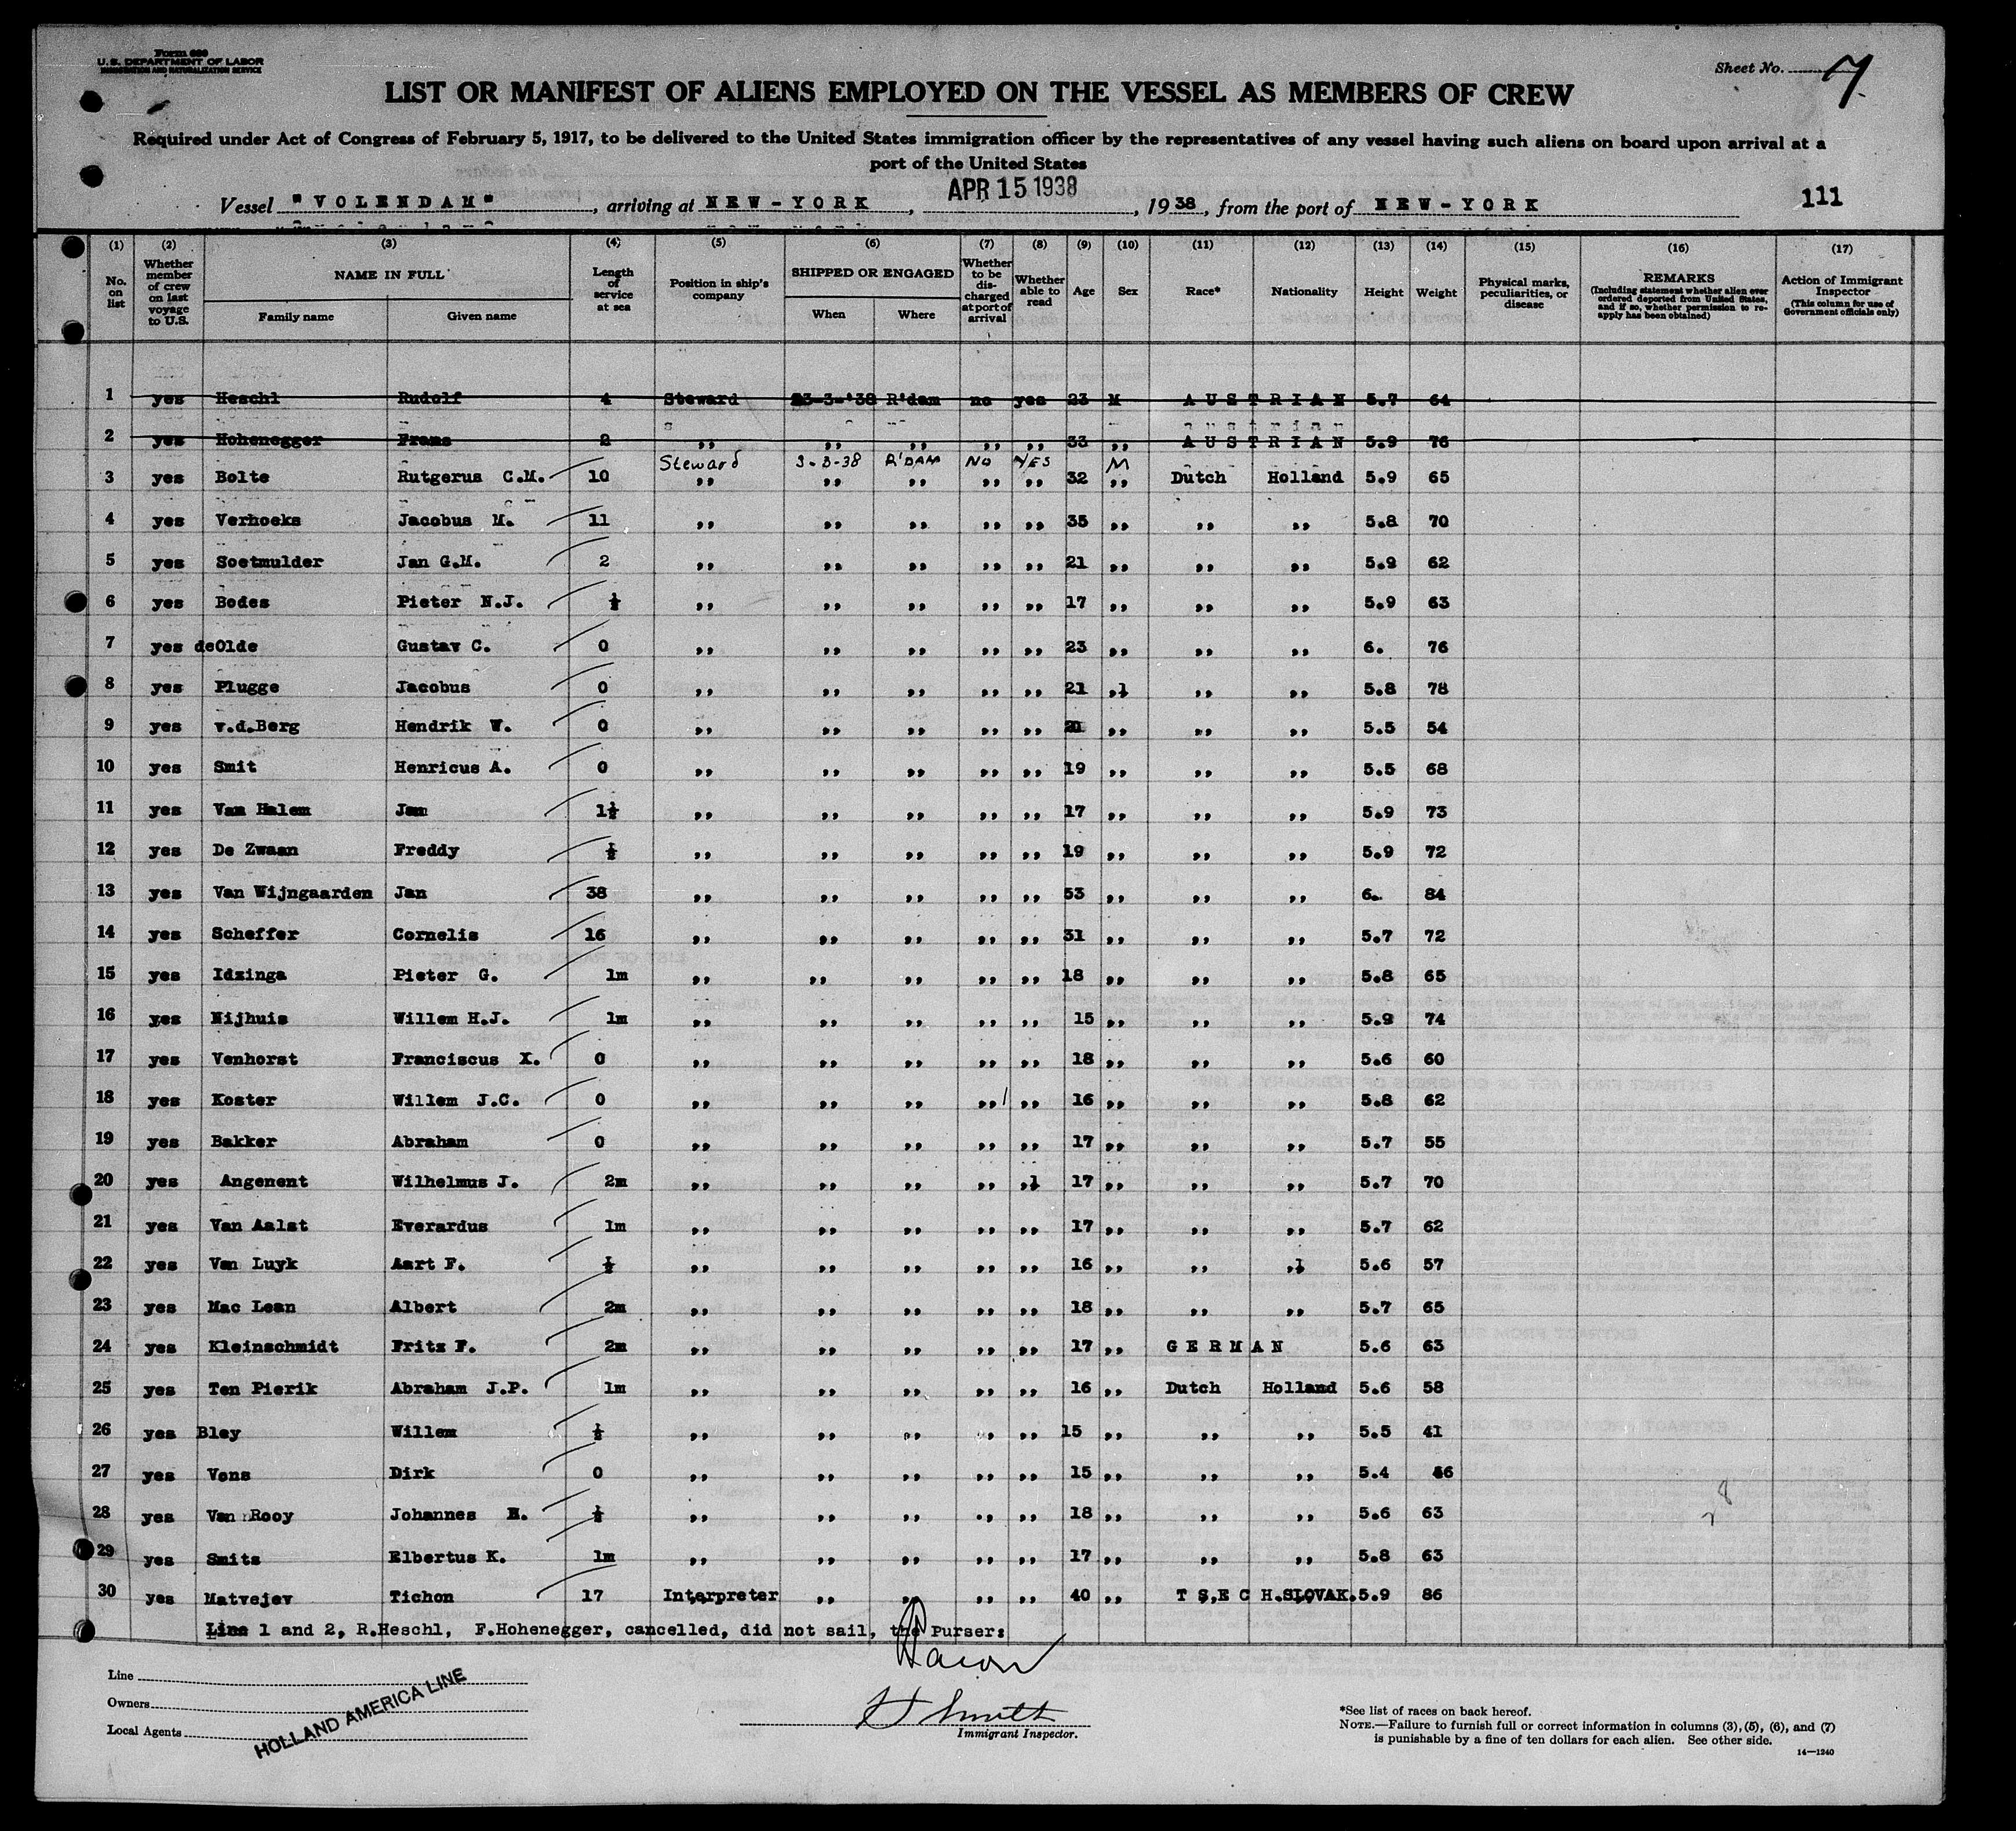 Form 680
U. S. DEPARTMENT OF LABOR
IMMIGRATION AND NATURALIZATION SERVICE
Sheet No. 7
LIST OR MANIFEST OF ALIENS EMPLOYED ON THE VESSEL AS MEMBERS OF CREW
Required under Act of Congress of February 5, 1917, to be delivered to the United States immigration officer by the representatives of any vessel having such aliens on board upon arrival at a
port of the United States
Vessel "VOLENDAM", arriving at NEW-YORK, APR 15 1938, 1938, from the port of NEW-YORK
111
(1) (2) (3) (4) (5) (6) (7) (8) (9) (10) (11) (12) (13) (14) (15) (16) (17)
No. on list
Whether member of crew on last voyage to U.S.
NAME IN FULL
Family name
Given name
Length of service at sea
Position in ship's company
SHIPPED OR ENGAGED
When
Where
Whether to be discharged at port of arrival
Whether able to read
Age
Sex
Race*
Nationality
Height
Weight
Physical marks, peculiarities, or disease
REMARKS
(Including statement whether alien ever ordered deported from United States, and if so, whether permission to reapply has been obtained)
Action of Immigrant Inspector
(This column for use of Government officials only)
1 yes Heschl Rudolf 4 Steward 23-3-'38 R'dam no yes 23 M AUSTRIAN 5.7 64
2 yes Hohenegger Frans 2 ,, ,, ,, ,, ,, 33 ,, AUSTRIAN 5.9 76
Steward 3-3-38 R'DAM NO YES M
3 yes Bolte Rutgerus C.M. 10 ,, ,, ,, ,, ,, 32 ,, Dutch Holland 5.9 65
4 yes Verhoeks Jacobus M. 11 ,, ,, ,, ,, ,, 35 ,, ,, ,, 5.8 70
5 yes Soetmulder Jan G.M. 2 ,, ,, ,, ,, ,, 21 ,, ,, ,, 5.9 62
6 yes Bodes Pieter N.J. ½ ,, ,, ,, ,, ,, 17 ,, ,, ,, 5.9 63
7 yes de Olde Gustav C. 0 ,, ,, ,, ,, ,, 23 ,, ,, ,, 6. 76
8 yes Plugge Jacobus 0 ,, ,, ,, ,, ,, 21 ,, ,, ,, 5.8 78
9 yes v.d.Berg Hendrik W. 0 ,, ,, ,, ,, ,, ,, ,, ,, 5.5 54
10 yes Smit Henricus A. 0 ,, ,, ,, ,, ,, 19 ,, ,, ,, 5.5 68
11 yes Van Halem Jan 1½ ,, ,, ,, ,, ,, 17 ,, ,, ,, 5.9 73
12 yes De Zwaan Freddy ½ ,, ,, ,, ,, ,, 19 ,, ,, ,, 5.9 72
13 yes Van Wijngaarden Jan 38 ,, ,, ,, ,, ,, 53 ,, ,, ,, 6. 84
14 yes Scheffer Cornelis 16 ,, ,, ,, ,, ,, 31 ,, ,, ,, 5.7 72
15 yes Idzinga Pieter G. 1m ,, ,, ,, ,, ,, 18 ,, ,, ,, 5.8 65
16 yes Nijhuis Willem H.J. 1m ,, ,, ,, ,, ,, 15 ,, ,, ,, 5.9 74
17 yes Venhorst Franciscus X. 0 ,, ,, ,, ,, ,, 18 ,, ,, ,, 5.6 60
18 yes Koster Willem J.C. 0 ,, ,, ,, ,, ,, 16 ,, ,, ,, 5.8 62
19 yes Bakker Abraham 0 ,, ,, ,, ,, ,, 17 ,, ,, ,, 5.7 55
20 yes Angenent Wilhelmus J. 2m ,, ,, ,, ,, ,, 17 ,, ,, ,, 5.7 70
21 yes Van Aalst Everardus 1m ,, ,, ,, ,, ,, 17 ,, ,, ,, 5.7 62
22 yes Van Luyk Aart F. ½ ,, ,, ,, ,, ,, 16 ,, ,, ,, 5.6 57
23 yes Mac Lean Albert 2m ,, ,, ,, ,, ,, 18 ,, ,, ,, 5.7 65
24 yes Kleinschmidt Fritz F. 2m ,, ,, ,, ,, ,, 17 ,, GERMAN 5.6 63
25 yes Ten Pierik Abraham J.P. 1m ,, ,, ,, ,, ,, 16 ,, Dutch Holland 5.6 58
26 yes Bley Willem ½ ,, ,, ,, ,, ,, 15 ,, ,, ,, 5.5 41
27 yes Vons Dirk 0 ,, ,, ,, ,, ,, 15 ,, ,, ,, 5.4
28 yes Van Rooy Johannes H. ½ ,, ,, ,, ,, ,, 18 ,, ,, ,, 5.6 63
29 yes Smits Elbertus K. 1m ,, ,, ,, ,, ,, 17 ,, ,, ,, 5.8 63
30 yes Matvejev Tichon 17 Interpreter ,, ,, ,, ,, 40 ,, TSECH.SLOVAK. 5.9 86
Line 1 and 2, R.Heschl, F.Hohenegger, cancelled, did not sail, the Purser:
Line
Owners
Local Agents
HOLLAND AMERICA LINE
Immigrant Inspector.
*See list of races on back hereof.
NOTE.—Failure to furnish full or correct information in columns (3), (5), (6), and (7)
is punishable by a fine of ten dollars for each alien. See other side.
14—1240